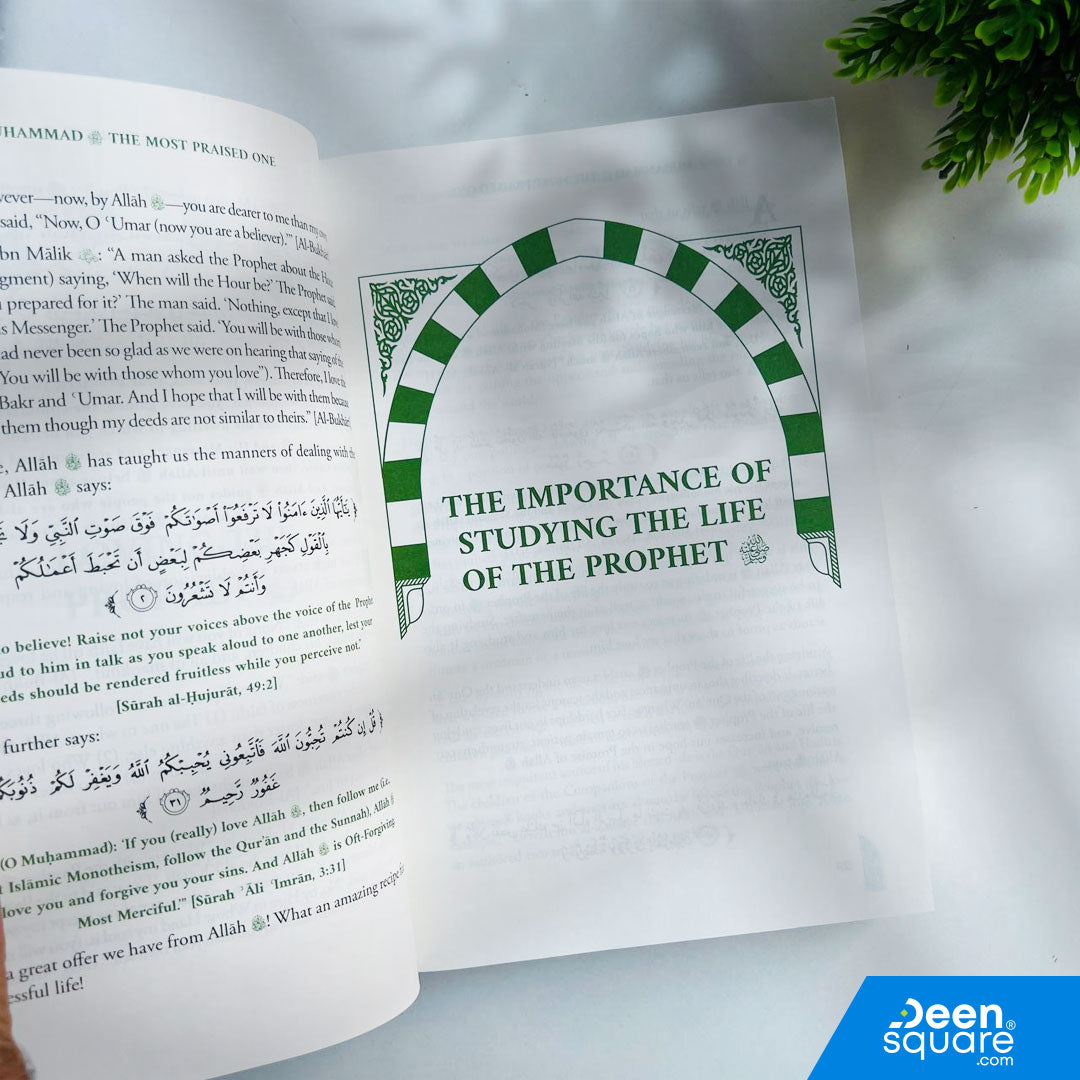 UHAMMAD ﷺ THE MOST PRAISED ONE
ever—now, by Allāh ﷻ—you are dearer to me than my own
said, “Now, O ʿUmar (now you are a believer).’” [Al-Bukhārī]
bn Mālik: “A man asked the Prophet about the Hour
gment) saying, ‘When will the Hour be?’ The Prophet said
prepared for it?’ The man said. ‘Nothing, except that I love
s Messenger.’ The Prophet said. ‘You will be with those whom
ad never been so glad as we were on hearing that saying of the
You will be with those whom you love”). Therefore, I love the
Bakr and ʿUmar. And I hope that I will be with them because
them though my deeds are not similar to theirs.” [Al-Bukhārī]
e, Allāh ﷻ has taught us the manners of dealing with the
Allāh ﷻ says:
﴿ يَٰٓأَيُّهَا ٱلَّذِينَ ءَامَنُوا۟ لَا تَرْفَعُوٓا۟ أَصْوَٰتَكُمْ فَوْقَ صَوْتِ ٱلنَّبِىِّ وَلَا
بِٱلْقَوْلِ كَجَهْرِ بَعْضِكُمْ لِبَعْضٍ أَن تَحْبَطَ أَعْمَٰلُكُمْ
وَأَنتُمْ لَا تَشْعُرُونَ ٢ ﴾
o believe! Raise not your voices above the voice of the Prophet
ud to him in talk as you speak aloud to one another, lest your
eeds should be rendered fruitless while you perceive not.’
[Sūrah al-Ḥujurāt, 49:2]
further says:
﴿ قُلْ إِن كُنتُمْ تُحِبُّونَ ٱللَّهَ فَٱتَّبِعُونِى يُحْبِبْكُمُ ٱللَّهُ وَيَغْفِرْ لَكُمْ ذُنُوبَكُمْ
غَفُورٌ رَّحِيمٌ ٣١ ﴾
(O Muḥammad): ‘If you (really) love Allāh ﷻ, then follow me (i.e.
t Islāmic Monotheism, follow the Qurʾān and the Sunnah), Allāh ﷻ
love you and forgive you your sins. And Allāh ﷻ is Oft-Forgiving
Most Merciful.’” [Sūrah ʾĀli ʿImrān, 3:31]
a great offer we have from Allāh ﷻ! What an amazing recipe
essful life!
THE IMPORTANCE OF
STUDYING THE LIFE
OF THE PROPHET ﷺ
Deen
square®
.com